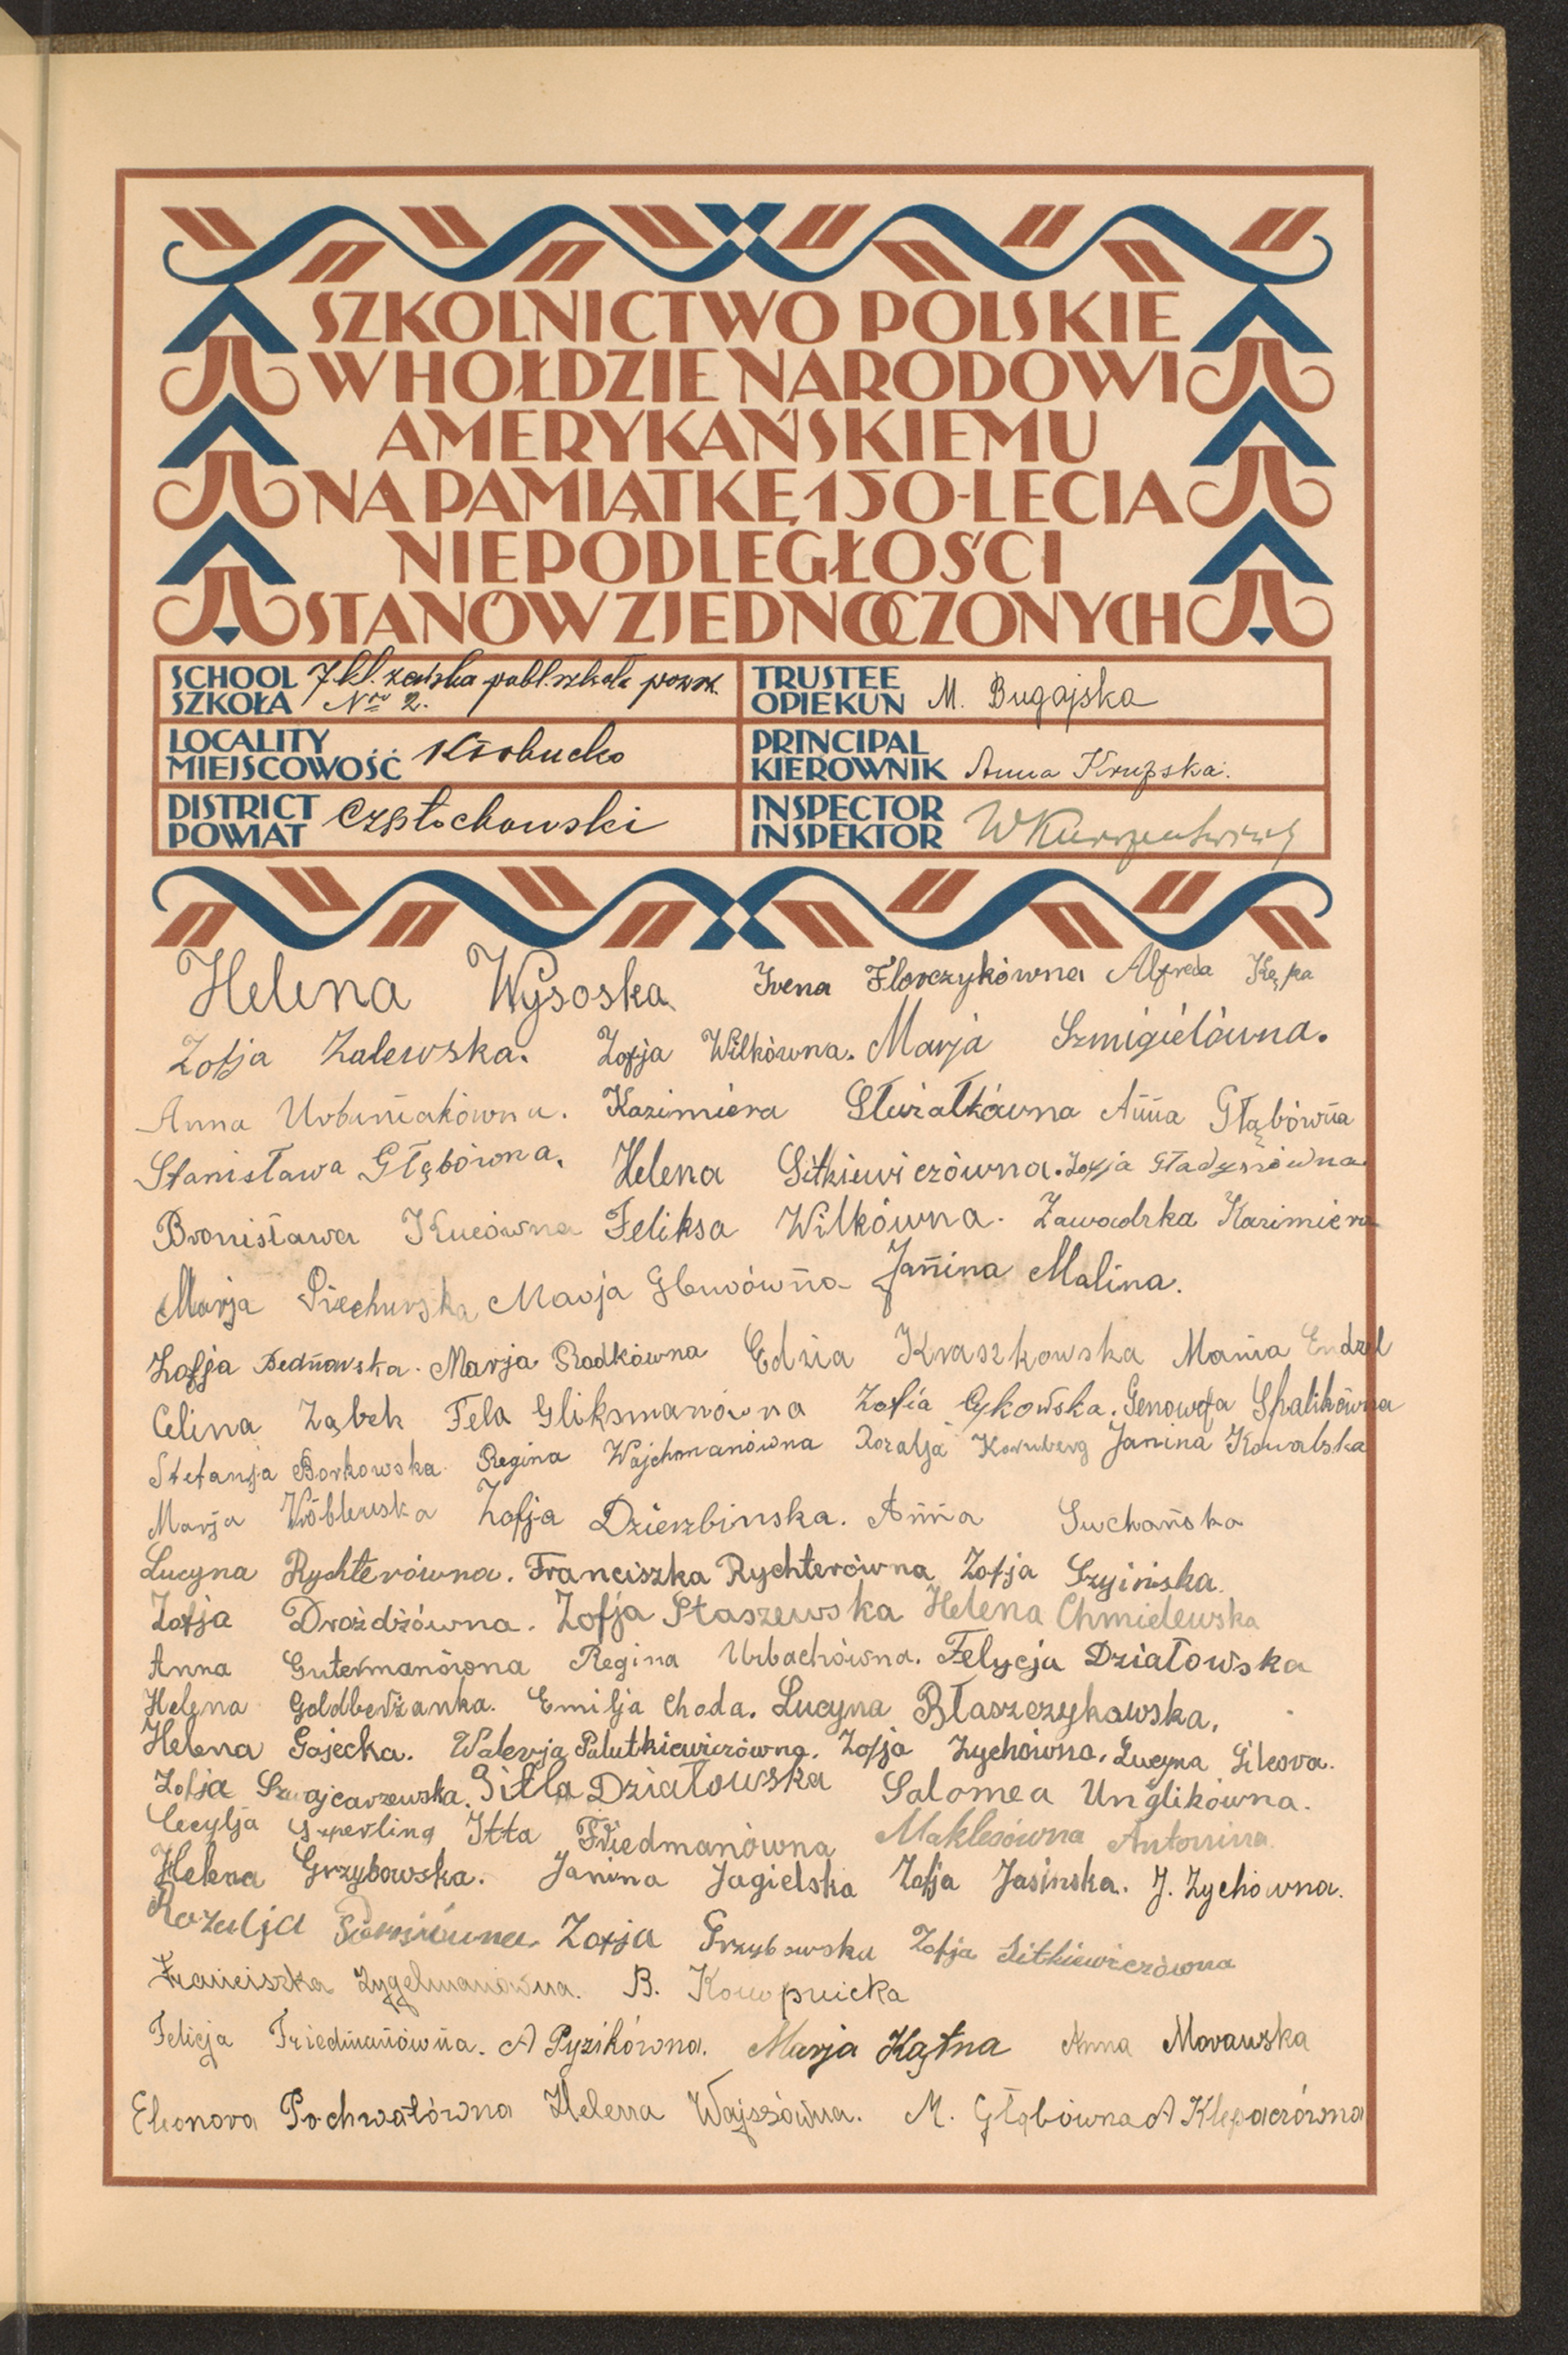 SZKOLNICTWO POLSKIE
W HOŁDZIE NARODOWI
AMERYKAŃSKIEMU
NA PAMIĄTKĘ 150-LECIA
NIEPODLEGŁOŚCI
STANÓW ZJEDNOCZONYCH
SCHOOL SZKOŁA 7 kl. żeńska publ. szkoła powsz. Nro 2.
TRUSTEE OPIEKUN M. Bugajska
LOCALITY MIEJSCOWOŚĆ Kłobucko
PRINCIPAL KIEROWNIK Anna Krupska.
DISTRICT POWIAT Częstochowski
INSPECTOR INSPEKTOR
Helena Wysoska Irena Florczykówna Alfreda Kępa
Zofja Zalewska. Zofja Wilkówna. Marja Szmigielówna.
Anna Urbaniakówna. Kazimiera Anna Głąbówna
Stanisława Głąbówna. Helena Sitkiewiczówna. Zofja Gładysiówna
Bronisława Kucówna Feliksa Wilkówna. Zawadzka Kazimiera
Marja Piechurska Marja Janina Malina.
Zofja Bednarska. Marja Rodkówna Edzia Kraszkowska Mania Endzel
Celina Ząbek Fela Gliksmanówna Zofia Cykowska. Genowefa Spalikówna
Stefanja Borkowska Regina Wajchmanówna Rozalja Kornberg Janina Kowalska
Marja Wóblewska Zofja Dzierzbinska. Anna Suchańska
Lucyna Rychterówna. Franciszka Rychterówna Zofja
Zofja Drożdżówna. Zofja Staszewska Helena Chmielewska
Anna Gutermanówna Regina Urbachówna. Felycja Działowska
Helena Goldberżanka. Emilja Choda. Lucyna Błaszczykowska,
Helena Gajecka. Walerja Palutkiewiczówna. Zofja Zychówna, Lucyna
Zofja Szwajcarzewska. Gitla Działowska Salomea Unglikówna.
Cecylja Szperling Itta Friedmanówna Maklesówna Antonina.
Helena Grzybowska. Janina Jagielska Zofja Jasinska. J. Zychówna.
Rozalja Zofja Grzybowska Zofja Sitkiewiczówna
Franciszka Zygelmanówna. B. Konopnicka
Felicja Friedmanówna. A Pyzikówna. Marja Kątna Anna Morawska
Eleonora Pochwałówna Helena Wajszówna. M. Głąbówna A Klepaczówna